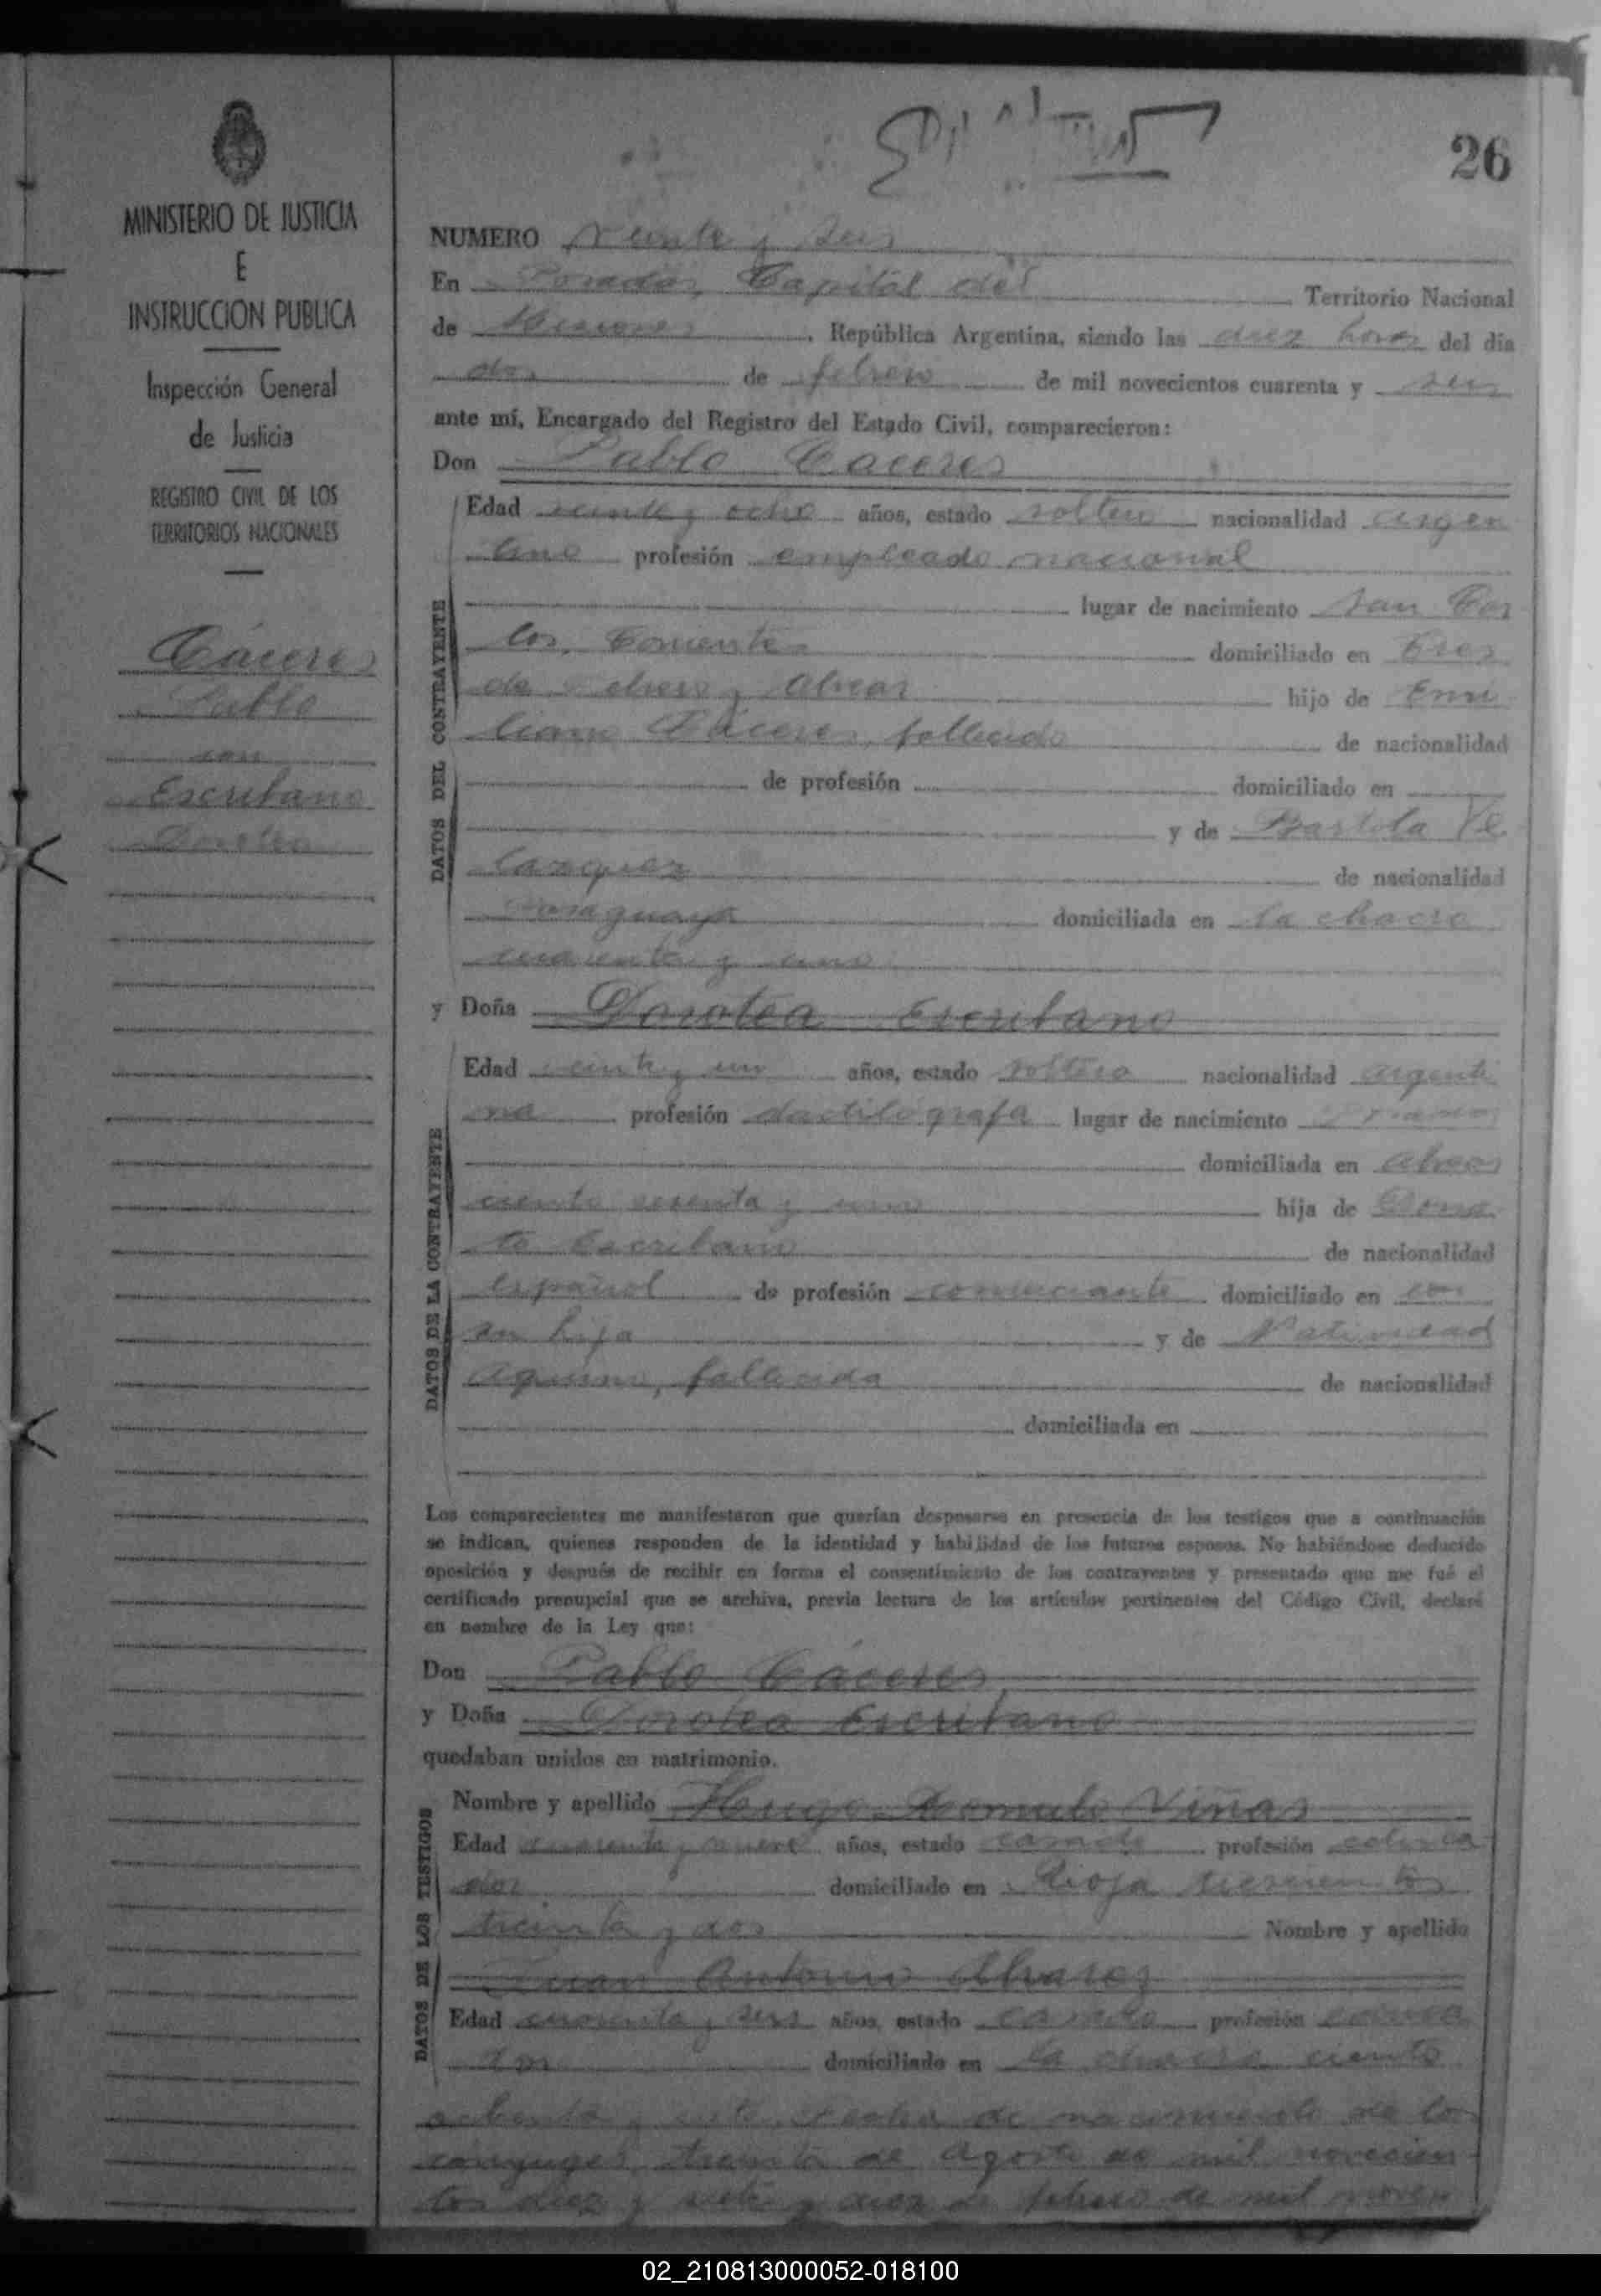 26
MINISTERIO DE JUSTICIA
E
INSTRUCCION PUBLICA
Inspección General
de Justicia
REGISTRO CIVIL DE LOS
TERRITORIOS NACIONALES
Cáceres
Pablo
con
Escribano
Dorotea
NUMERO Veinte y seis
En Posadas, Capital del Territorio Nacional
de Misiones, República Argentina, siendo las diez horas del día
dos de febrero de mil novecientos cuarenta y seis
ante mí, Encargado del Registro del Estado Civil, comparecieron:
Don Pablo Caceres
DATOS DEL CONTRAYENTE
Edad veinte y ocho años, estado soltero nacionalidad argen
tino profesión empleado nacional
lugar de nacimiento San Car
los, Corrientes domiciliado en Tres
de febrero y Alvear hijo de Emi
liano Cáceres, fallecido de nacionalidad
de profesión domiciliado en
y de Bartola Ve
lazquez de nacionalidad
Paraguaya domiciliada en la chacra
cuarenta y uno
y Doña Dorotea Escribano
DATOS DE LA CONTRAYENTE
Edad veinte y un años, estado soltera nacionalidad argenti
na profesión dactilógrafa lugar de nacimiento
domiciliada en Alvear
ciento sesenta y uno hija de Dona
to Escribano de nacionalidad
español de profesión comerciante domiciliado en con
su hija y de Natividad
Aquino, fallecida de nacionalidad
domiciliada en
Los comparecientes me manifestaron que querían desposarse en presencia de los testigos que a continuación
se indican, quienes responden de la identidad y habilidad de los futuros esposos. No habiéndose deducido
oposición y después de recibir en forma el consentimiento de los contrayentes y presentado que me fué el
certificado prenupcial que se archiva, previa lectura de los artículos pertinentes del Código Civil, declaré
en nombre de la Ley que:
Don Pablo Cáceres
y Doña Dorotea Escribano
quedaban unidos en matrimonio.
DATOS DE LOS TESTIGOS
Nombre y apellido Hugo Romulo Viñas
Edad cuarenta y nueve años, estado casado profesión educa
dor domiciliado en Rioja trescientos
treinta y dos Nombre y apellido
Juan Antonio Alvarez
Edad cuarenta y seis años, estado casado profesión educa
dor domiciliado en la chacra ciento
ochenta y siete. Fecha de nacimiento de los
conyuges: treinta de Agosto de mil novecien
tos diez y siete y diez de febrero de mil noven
02_210813000052-018100